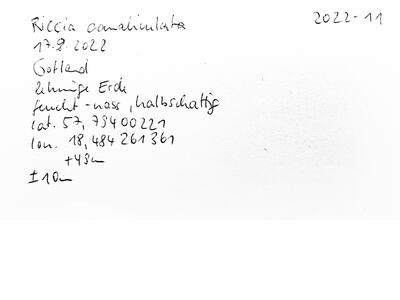 2022-11
Riccia canaliculata
17.9.2022
Gotland
lehmige Erde
feucht-nass, halbschattig
lat. 57,79400221
lon. 18,484261361
+43m
±10m